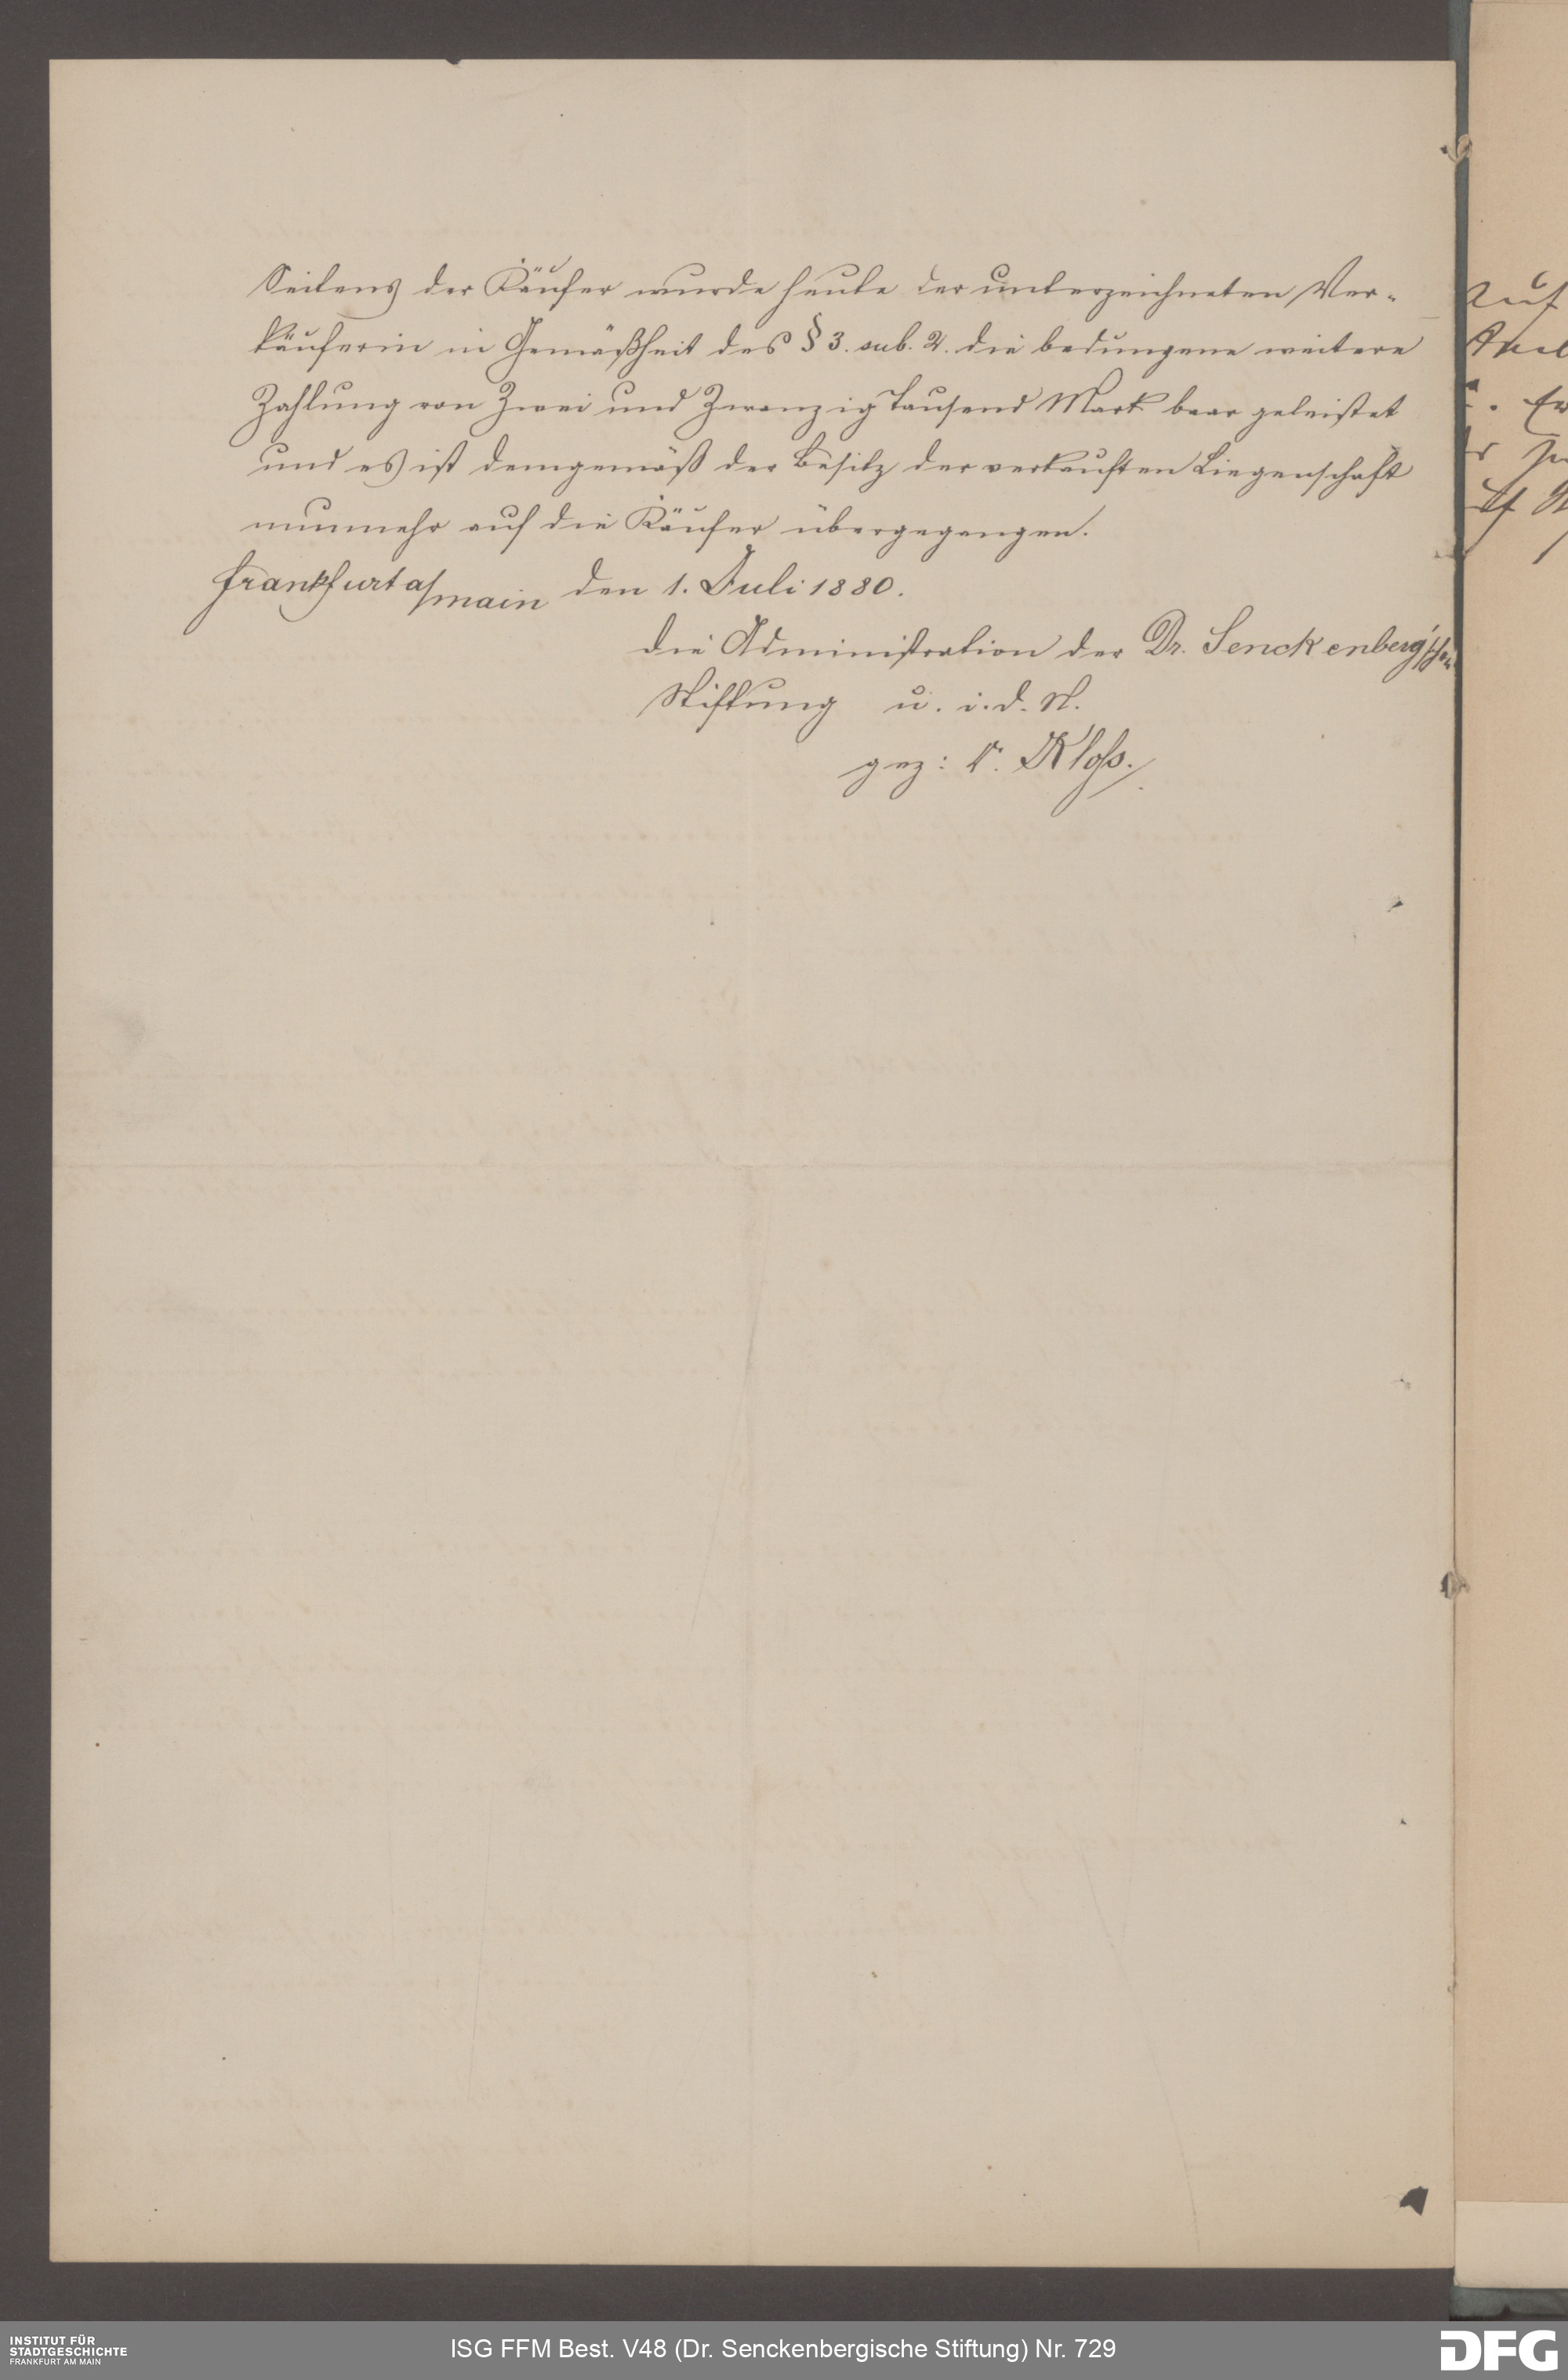 Seitens der Käufer wurde heute der unterzeichneten Ver-
käuferin in Gemäßheit des § 3. sub. 2. die bedungene weitere
Zahlung von Zwei und Zwanzig Tausend Mark baar geleistet
und es ist demgemäß der Besitz der verkauften Liegenschaft
nunmehr auf die Käufer übergegangen.
Frankfurt a/main den 1. Juli 1880.
Die Administration der Dr. Senckenberg'schen
Stiftung u. i. d. N.
gez: Dr. Kloß.
Auf
INSTITUT FÜR
STADTGESCHICHTE
FRANKFURT AM MAIN
ISG FFM Best. V48 (Dr. Senckenbergische Stiftung) Nr. 729
DFG